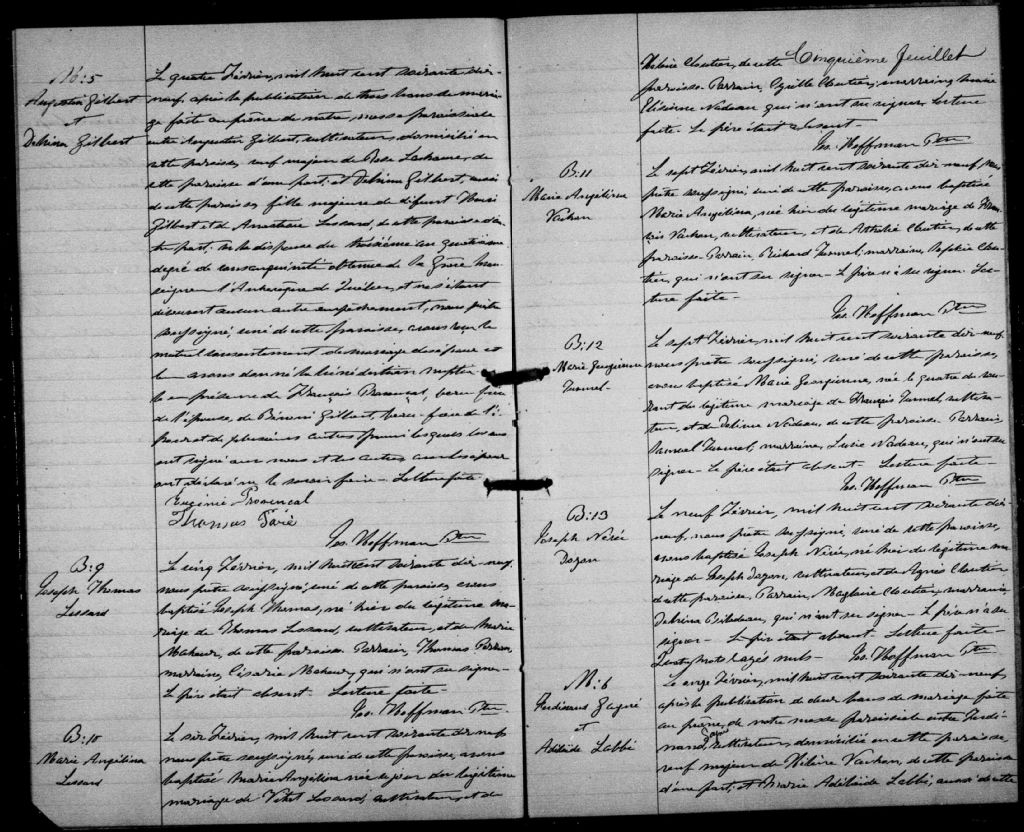 No: 5
Augustin Gilbert
et
Delvina Gilbert
Le quatre Février, mil huit cent soixante dix-
neuf, après la publication de trois bans de maria-
ge faite au prône de notre messe paroissiale
entre Augustin Gilbert, cultivateur, domicilié en
cette paroisse, veuf majeur de Rose Lachance, de
cette paroisse d'une part, et Delvina Gilbert, aussi
de cette paroisse, fille majeure de défunt
Gilbert et de Lessard, de cette paroisse d'au-
tre part, vu la dispense du troisième au quatrième
degré de consanguinité obtenue de Sa Grâce Mon-
seigneur l'Archevêque de Québec, et ne s'étant
découvert aucun autre empêchement, nous prêtre
soussigné, curé de cette paroisse, avons reçu le
mutuel consentement de mariage des époux et
leur avons donné la bénédiction nuptia-
le en présence de François Provencal, beau frère
de l'épouse, de Gilbert, beau-frère de l'é-
poux et de plusieurs autres parmi lesquels les uns
ont signé avec nous et les autres avec les époux
ont déclaré ne le savoir faire - Lecture faite -
Eugénie Provencal
Thomas Paré
Jos. Hoffman Ptre
B: 9
Joseph Thomas
Lessard
Le cinq Février, mil huit cent soixante dix-neuf,
nous prêtre soussigné, curé de cette paroisse, avons
baptisé Joseph Thomas, né hier du légitime ma-
riage de Thomas Lessard, cultivateur, et de Marie
Maheux, de cette paroisse. Parrain, Thomas
marraine, Césarie Maheux, qui n'ont su signer -
Le père était absent - Lecture faite -
Jos. Hoffman Ptre
B: 10
Marie Angélina
Lessard
Le six Février, mil huit cent soixante dix neuf
nous prêtre soussigné, curé de cette paroisse, avons
baptisé Marie Angélina née le jour du légitime
mariage de Vital Lessard, cultivateur, et de
Cinquième feuillet
Hélène Cloutier, de cette
paroisse. Parrain, Cloutier, marraine, Marie
Nadeau qui n'ont su signer. Lecture
faite. Le père était absent -
Jos. Hoffman Ptre
B: 11
Marie Angélina
Vachon
Le sept Février, mil huit cent soixante dix neuf, nous
prêtre soussigné, curé de cette paroisse, avons baptisé
Marie Angélina, née hier du légitime mariage de Fran-
çois Vachon, cultivateur, et de Cloutier, de cette
paroisse. Parrain, Richard marraine, Sophie Clou-
tier, qui n'ont su signer - Le père n'a su signer. Lec-
ture faite -
Jos. Hoffman Ptre
B: 12
Marie Georgienne
Le sept Février, mil huit cent soixante dix neuf
nous prêtre soussigné, curé de cette paroisse,
avons baptisé Marie Georgienne, née le quatre du cou-
rant du légitime mariage de François cultiva-
teur, et de Nadeau, de cette paroisse. Parrain,
Samuel marraine, Lucie Nadeau, qui n'ont su
signer - Le père était absent - Lecture faite -
Jos. Hoffman Ptre
B: 13
Joseph Nérée
Doyon
Le neuf Février, mil huit cent soixante dix-
neuf, nous prêtre soussigné, curé de cette paroisse,
avons baptisé Joseph Nérée, né hier du légitime ma-
riage de Joseph Doyon, cultivateur, et de Agnès Cloutier
de cette paroisse. Parrain, Magloire Cloutier, marraine,
Delvina Bilodeau, qui n'ont su signer - Le père n'a su
signer - Le père était absent. Lecture faite -
Quatre mots rayés nuls - Jos. Hoffman Ptre
M: 6
Ferdinand Gagné
et
Adélaïde Labbé
Le onze Février, mil huit cent soixante dix-neuf,
après la publication de deux bans de mariage faite
au prône de notre messe paroissiale entre Ferdi-
nand Gagné cultivateur, domicilié en cette paroisse,
veuf majeur de Hélène Vachon, de cette paroisse
d'une part, et Marie Adélaïde Labbé, aussi de cette